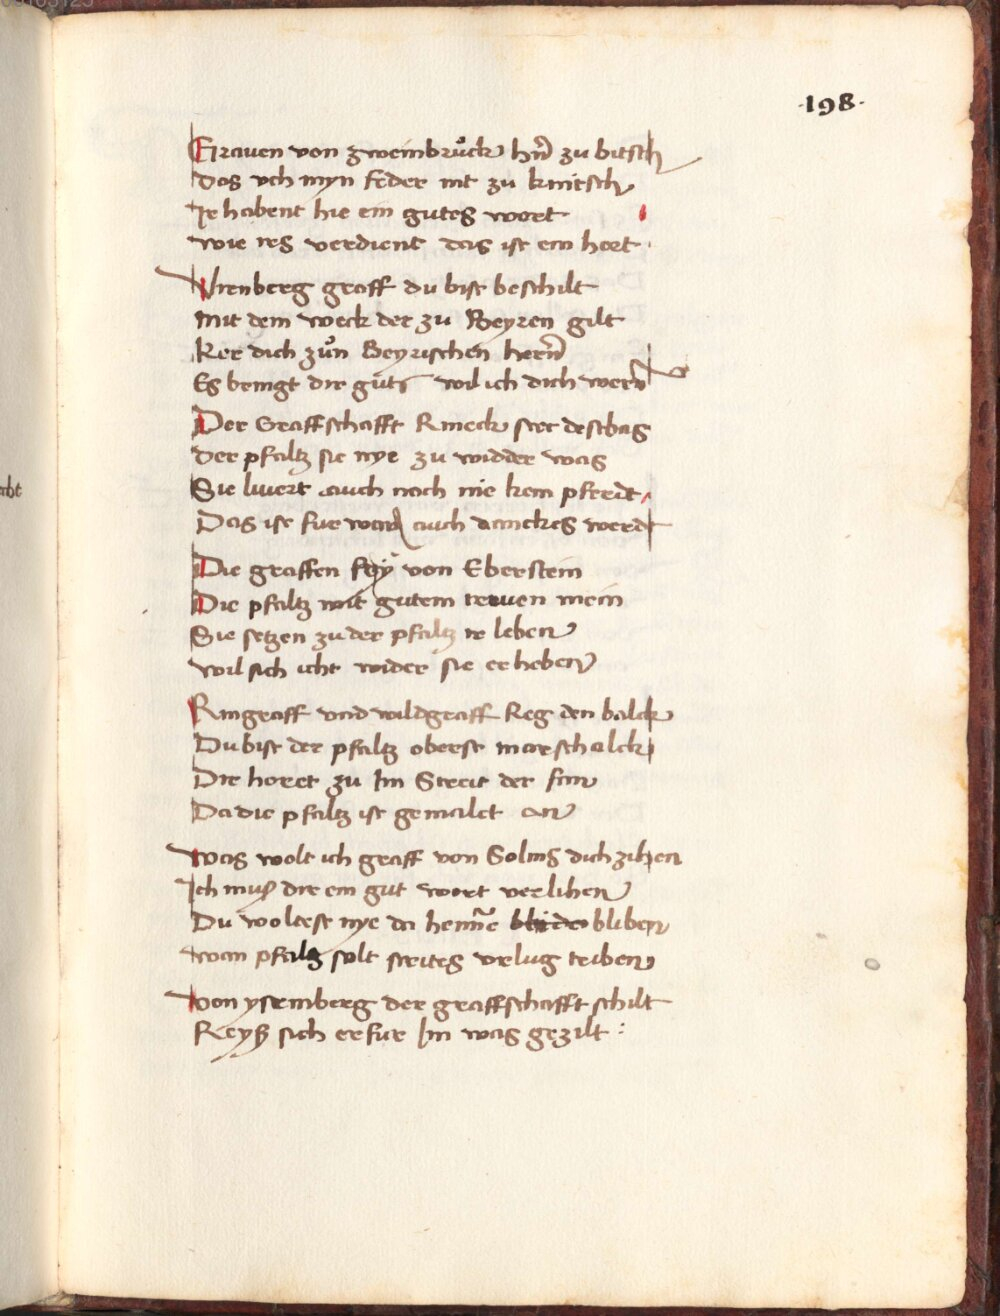 ·198·
Grauen von zweinbrůck hñ zu bitsch
das vch myn feder nit zu knitsch
Ir habent hie ein gutes wort
wie irs verdient das ist ein hort
Virenberg graff du bist beschilt
mit dem weck der zu Beyren gilt
ker dich zůn Beyrischen hern
Es bringt dir güts wil ich dich wern
Der Graffschafft Rineck stet destbas
der pfaltz sie nye zu widder was
Sie luert auch noch nie kein pferdt
Das ist fur war auch danckes werdt
Die graffen von Eberstein
Die pfaltz mit gutem trewen mein
Sie setzen zu der pfaltz ir leben
wil sich icht wider sie erheben
Ringraff vnd wildgraff Reg den balck
Du bist der pfaltz oberst marschalck
Dir horet zu Im Streit der fan
Da die pfaltz ist gemalet an
was wolt ich graff von Solms dich zihen
Ich muß dir ein gut wort verlihen
Du woltest nye da heim̃e bliben
wan pfaltz solt streites vrlug triben
von ysemberg der graffschafft schilt
Reyß sich erfur Im was gezilt :